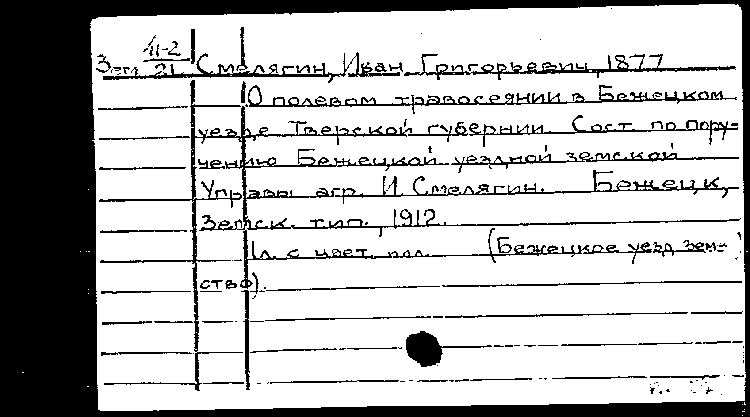 Зем. 4-2/21 Смелягин, Иван Григорьевич, 1877
О полевом травосеянии в Бежецком
уезде Тверской губернии. Сост. по пору-
чению Бежецкой уездной земской
Управы агр. И. Смелягин. Бежецк,
Земск. тип., 1912.
1л. с цвет. илл. (Бежецкое уезд. зем-
ство).